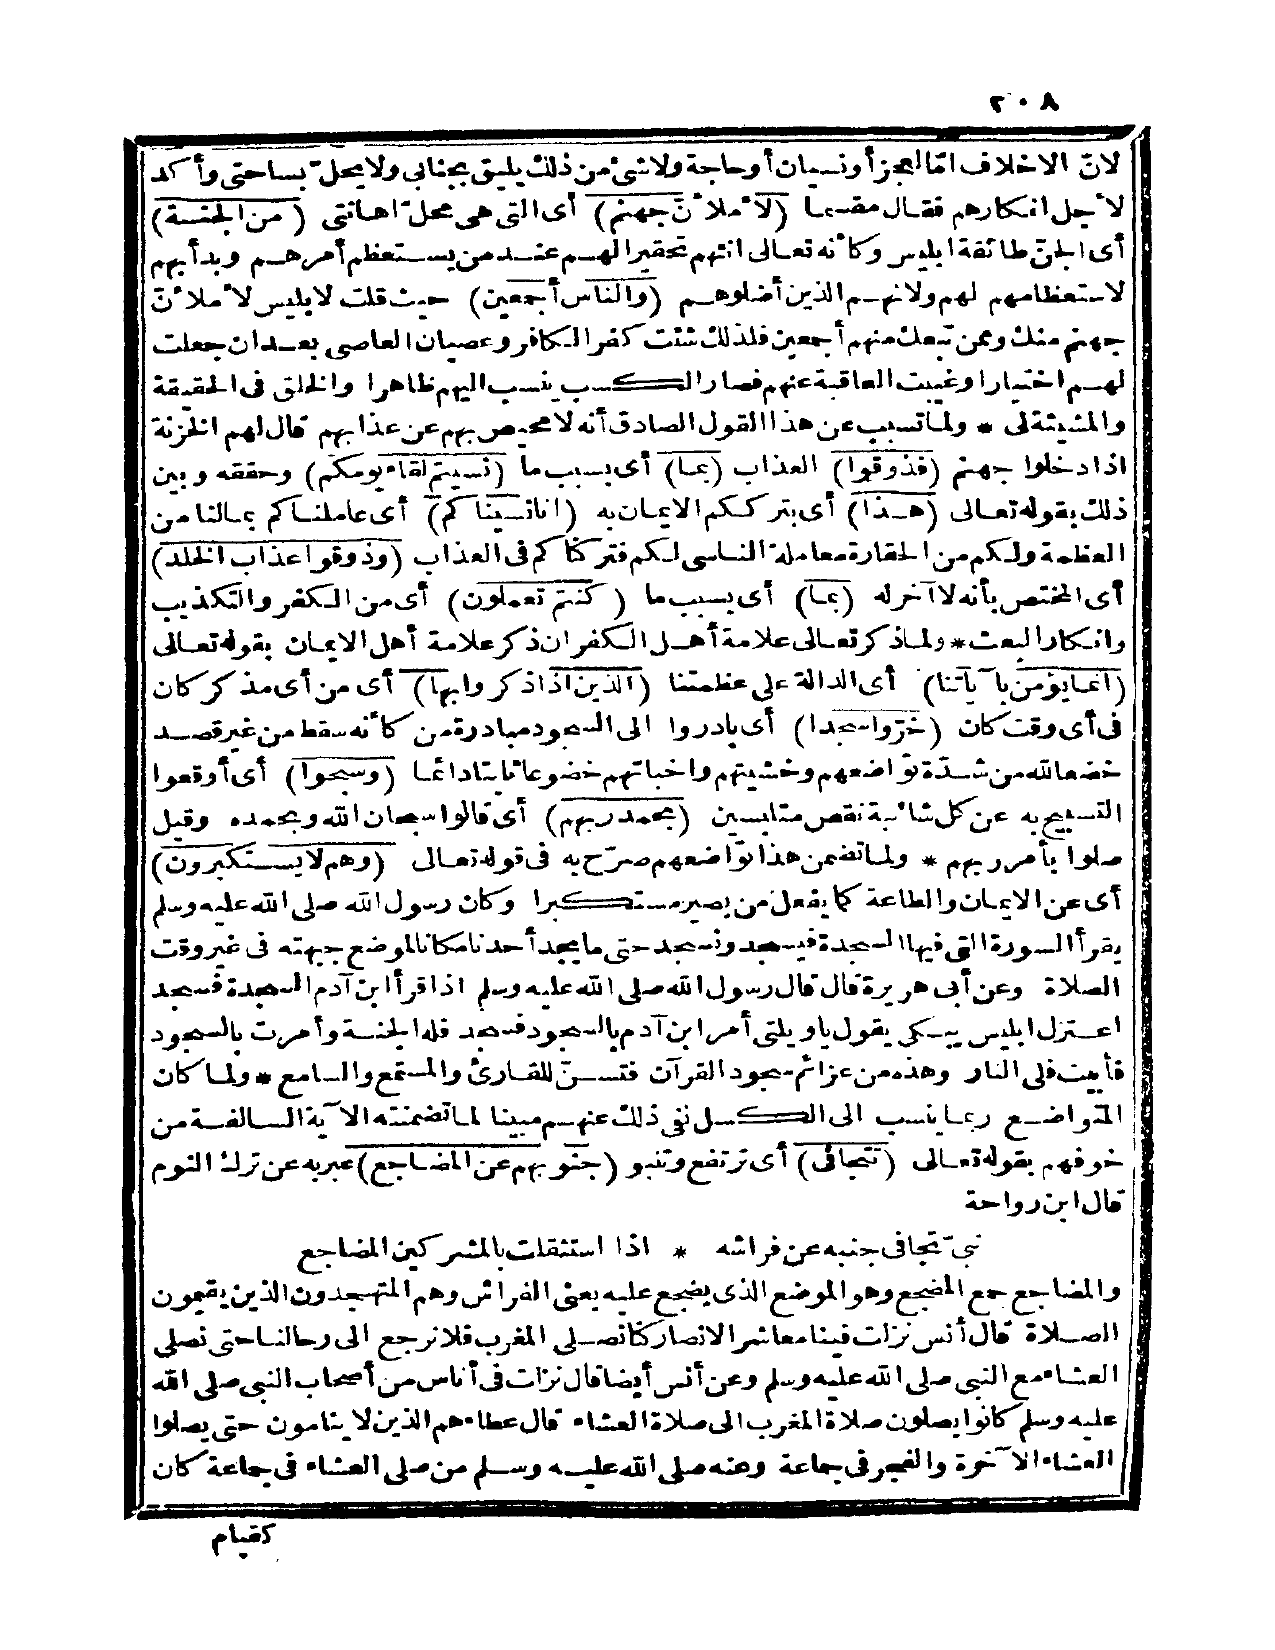 ٢٠٨
لانّ الاخلاف امّا لعجز أو نسيان أو حاجة ولا شئ من ذلك يليق بجنابى ولا يحل بساحتى وأكد
لأجل انكارهم فقال مقسما (لأملأنّ جهنم) أى التى هى محل اهانتى (من الجنة)
أى الجنّ طائفة ابليس وكأنه تعالى انثهم تحقيرا لهم عند من يستعظم أمرهم وبدأ بهم
لاستعظامهم لهم ولانهم الذين أضلوهم (والناس أجمعين) حيث قلت لابليس لأملأنّ
جهنم منك وممن تبعك منهم أجمعين فلذلك شئت كفر الكافر وعصيان العاصى بعد ان جعلت
لهم اختيارا وغيبت العاقبة عنهم فصار الكسب ينسب اليهم ظاهرا والخلق فى الحقيقة
والمشيئة لى * ولما تسبب عن هذا القول الصادق أنه لا محيص بهم عن عذابهم قال لهم الخزنة
اذا دخلوا جهنم (فذوقوا) العذاب (بما) أى بسبب ما (نسيتم لقاء يومكم) وحققه وبين
ذلك بقوله تعالى (هذا) أى بترككم الايمان به (انا نسيناكم) أى عاملناكم بمالنا من
العظمة ولكم من الحقارة معاملة الناسى لكم فتركناكم فى العذاب (وذوقوا عذاب الخلد)
أى المختص بأنه لا آخر له (بما) أى بسبب ما (كنتم تعملون) أى من الكفر والتكذيب
وانكار البعث * ولما ذكر تعالى علامة أهل الكفران ذكر علامة أهل الايمان بقوله تعالى
(انما يؤمن بآياتنا) أى الدالة على عظمتنا (الذين اذا ذكروا بها) أى من أى مذكر كان
فى أى وقت كان (خرّوا سجدا) أى بادروا الى السجود مبادرة من كأنه سقط من غير قصد
خضعا لله من شدّة تواضعهم وخشيتهم واخباتهم خضوعا ثابتا دائما (وسبحوا) أى أوقعوا
التسبيح به عن كل شائبة نقص متلبسين (بحمد ربهم) أى قالوا سبحان الله وبحمده وقيل
صلوا بأمر ربهم * ولما تضمن هذا تواضعهم صرّح به فى قوله تعالى (وهم لا يستكبرون)
أى عن الايمان والطاعة كما يفعل من يصير مستكبرا وكان رسول الله صلى الله عليه وسلم
يقرأ السورة التى فيها السجدة فيسجد ونسجد حتى ما يجد أحدنا مكانا لموضع جبهته فى غير وقت
الصلاة وعن أبى هريرة قال قال رسول الله صلى الله عليه وسلم اذا قرأ ابن آدم السجدة فسجد
اعتزل ابليس يبكى يقول يا ويلتى أمر ابن آدم بالسجود فسجد فله الجنة وأمرت بالسجود
فأبيت فلى النار وهذه من عزائم سجود القرآن فتسنّ للقارئ والمستمع والسامع * ولما كان
المتواضع ربما ينسب الى الكسل نفى ذلك عنهم مبينا لما تضمنته الآية السالفة من
خوفهم بقوله تعالى (تتجافى) أى ترتفع وتنبو (جنوبهم عن المضاجع) عبر به عن ترك النوم
قال ابن رواحة
نبىّ تجافى جنبه عن فراشه * اذا استثقلت بالمشركين المضاجع
والمضاجع جمع المضجع وهو الموضع الذى يضجع عليه يعنى الفراش وهم المتهجدون الذين يقيمون
الصلاة قال أنس نزلت فينا معاشر الانصار كنا نصلى المغرب فلا نرجع الى رحالنا حتى نصلى
العشاء مع النبى صلى الله عليه وسلم وعن أنس أيضا قال نزلت فى أناس من أصحاب النبى صلى الله
عليه وسلم كانوا يصلون صلاة المغرب الى صلاة العشاء قال عطاء هم الذين لا ينامون حتى يصلوا
العشاء الآخرة والفجر فى جماعة وعنه صلى الله عليه وسلم من صلى العشاء فى جماعة كان
كقيام